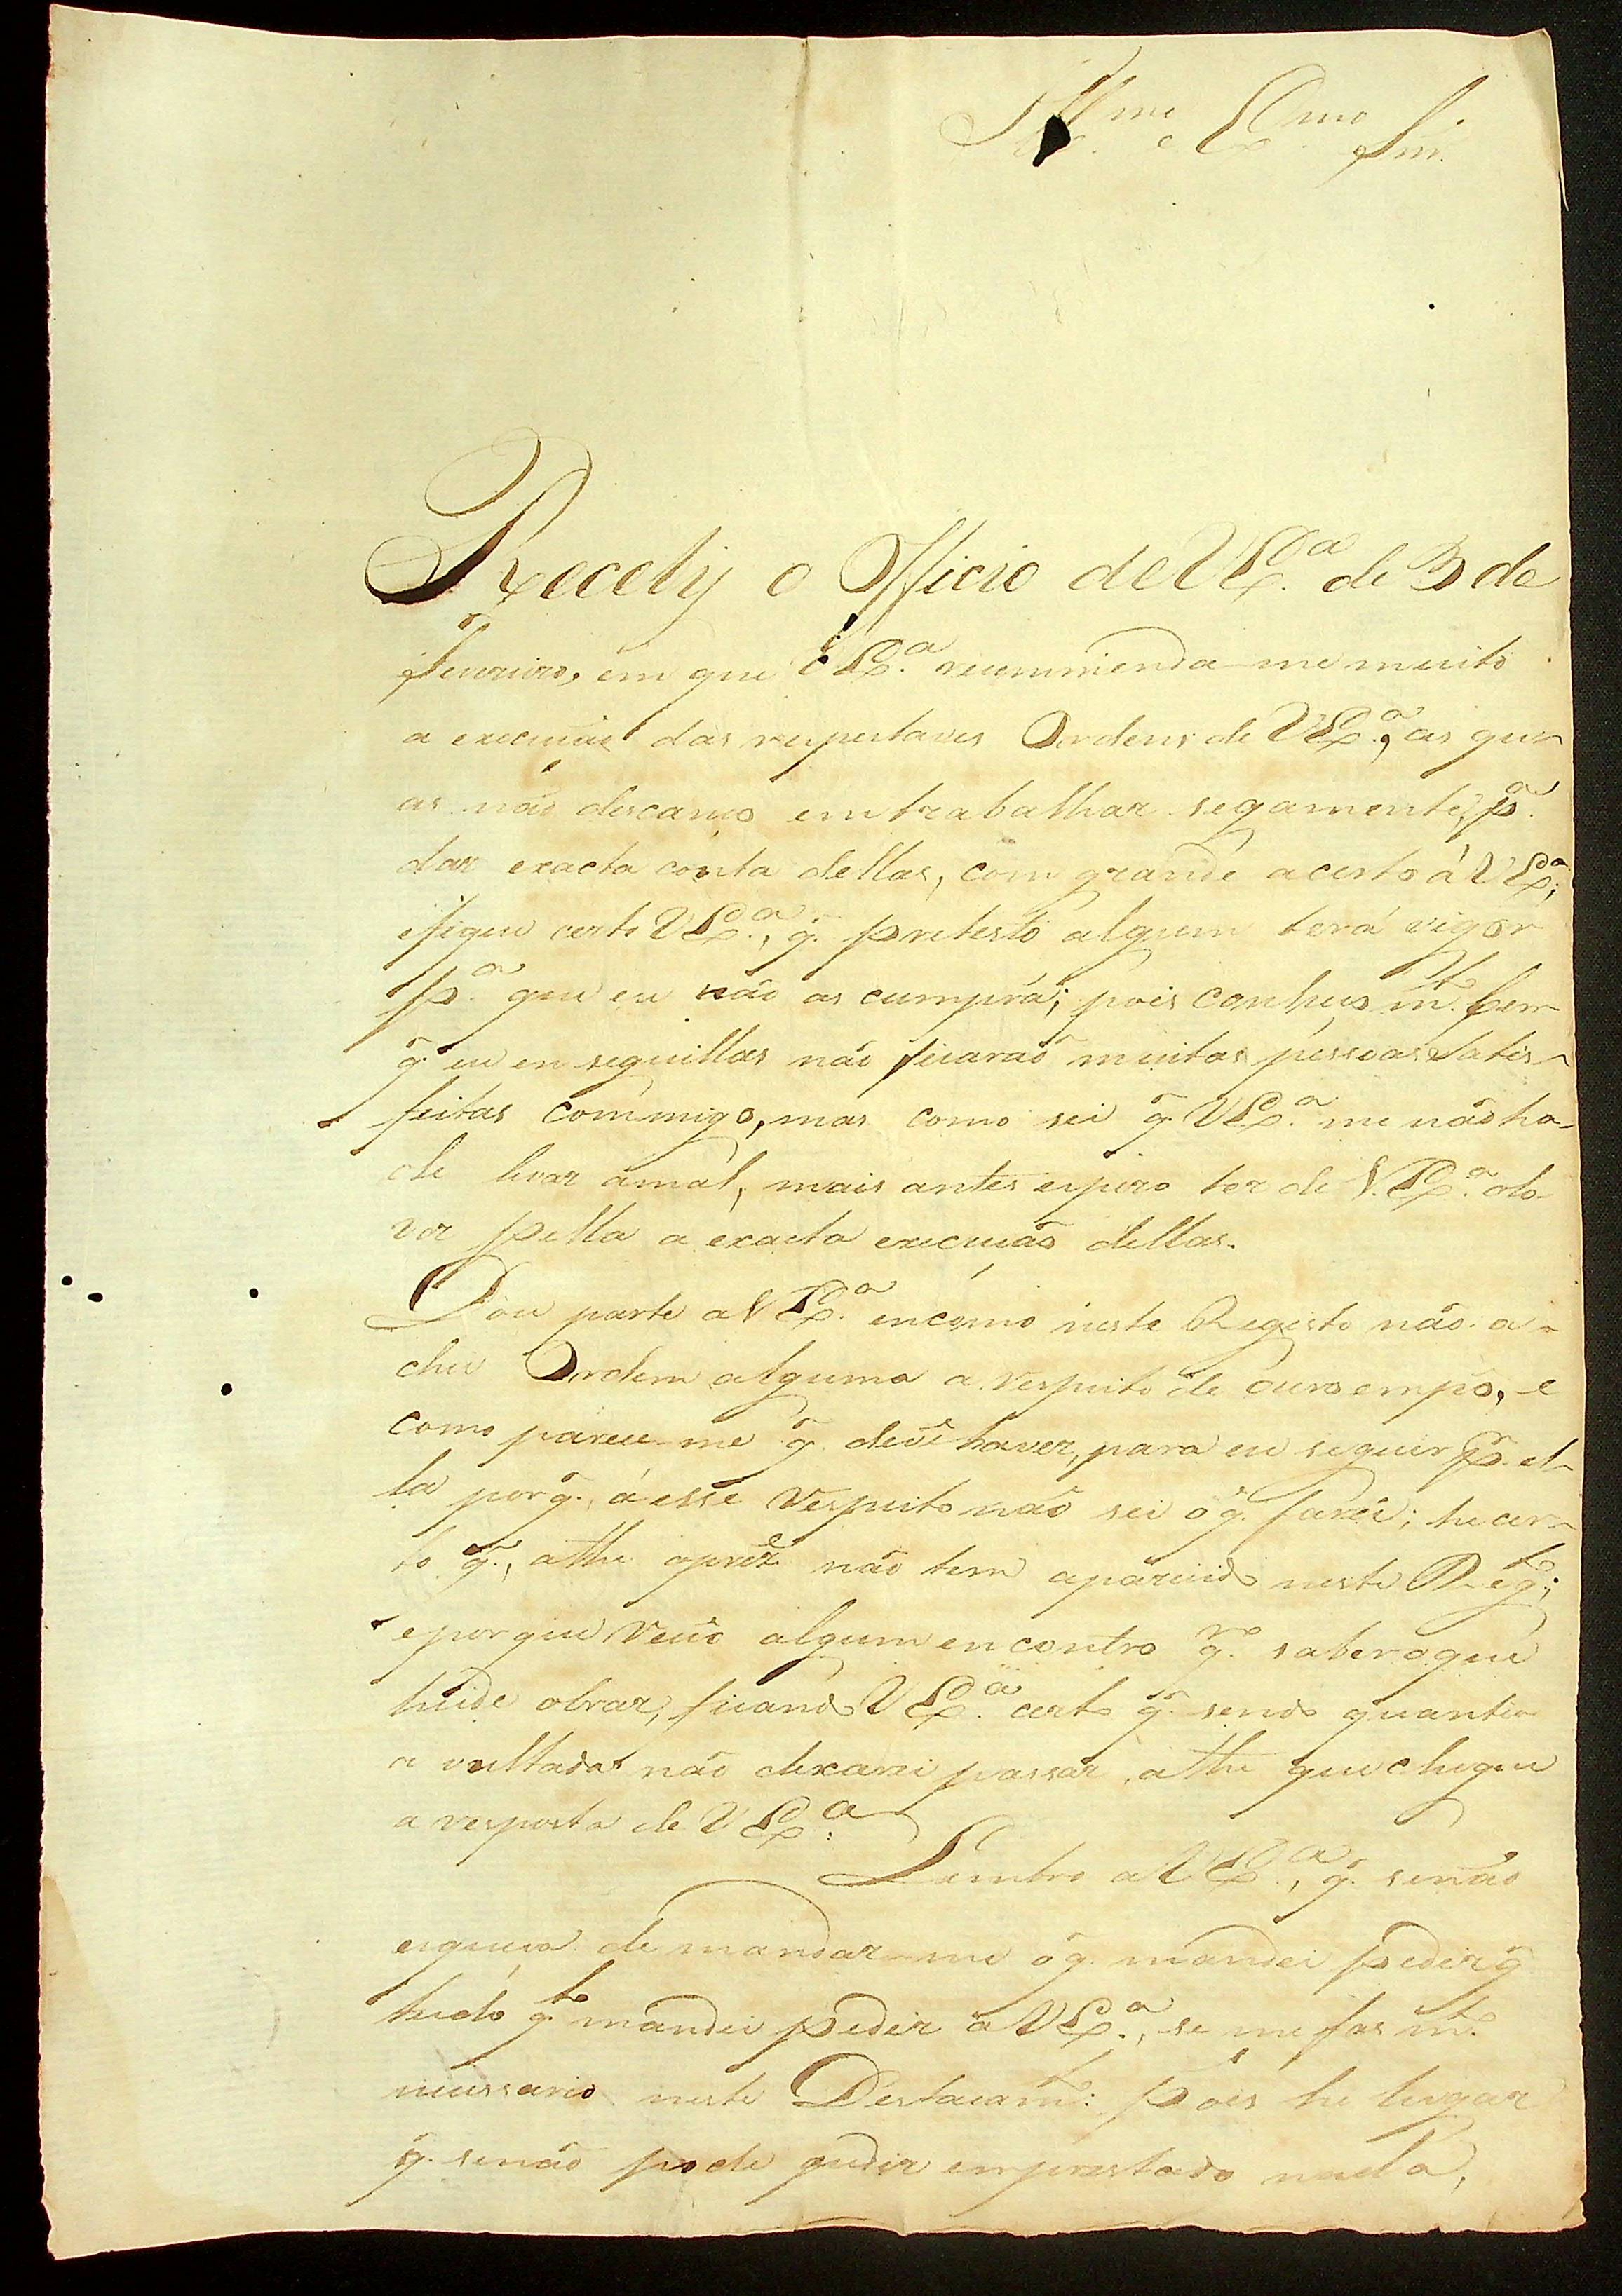 Ill.mo e Ex.mo Snr.
Receby o Officio de VEx.a de 3 de
Fevereiro, em que VEx.a recommenda-me muito
a execuçaõ das respeitaveis Ordens de VEx.a, as qu-
as não descanço em trabalhar segamente, p.a
dar exacta conta dellas, com grande acerto á VEx.a;
efique certo VEx.a, q̃. pretesto algum terá vigor
p.a que eu não as cumpra; pois conheço m.to bem
q̃ eu en seguillas não ficaraõ muitas pessoas Satis-
feitas commigo, mas como sei q̃. VEx.a me não ha-
de levar amal, mais antes espero ter de V.Ex.a olo-
vor pella a exacta execuçaõ dellas.
Dou parte a VEx.a encomo neste Registo não a-
chei Ordem alguma a respeito de ouro empó, e
como parece-me q̃. deve haver, para eu seguir p.r el-
la porq̃. á esse respeito não sei oq̃. farei; he cer-
to q̃., athe oprez.e não tem aparecido neste Reg.to;
eporque veúo algum encontro q.ro saber oque
heide obrar, ficando VEx.a certo q̃. sendo quantia
a vultada não dexarei passar, athe que chegue
a resposta de VEx.a
Lembro a VEx.a, q̃. senão
esqueça de mandar-me oq̃. mandei pedir q̃
tudo q.to mandei pedir a VEx.a, se me fas m.to
necessario neste Destacam.to: pois he lugar
q̃. senão pode pedir emprestado nada,